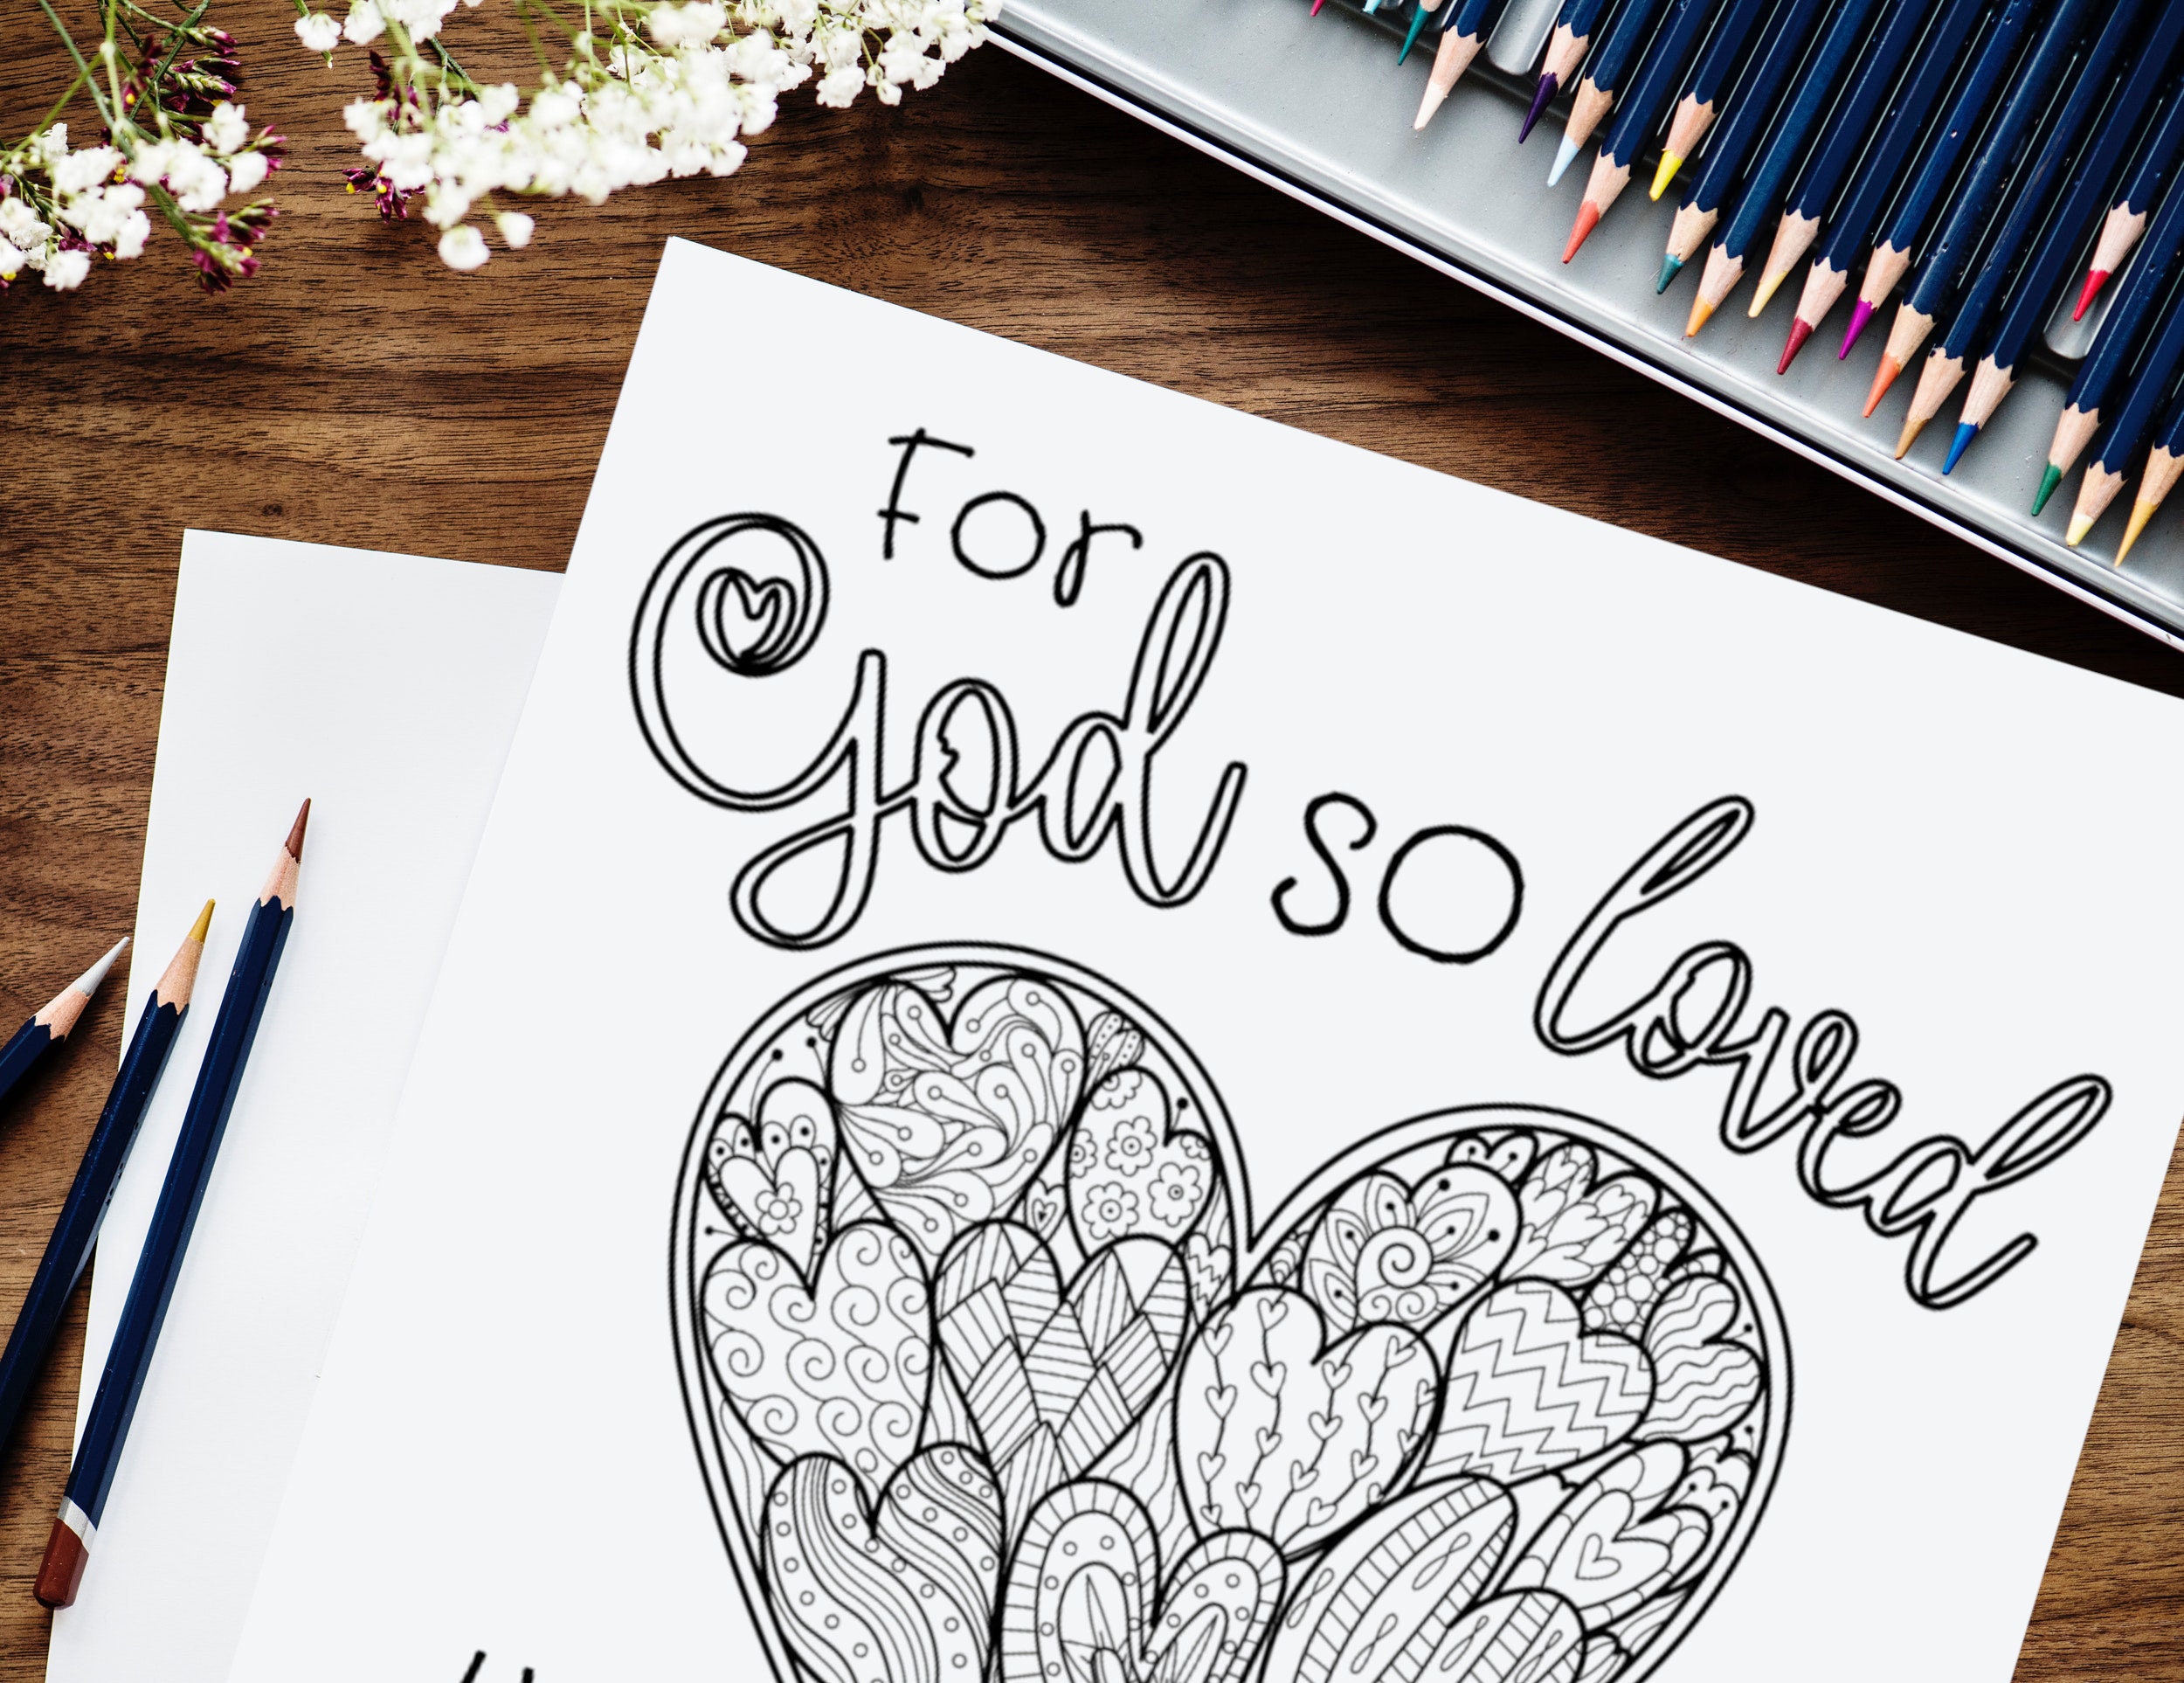 For
God so loved